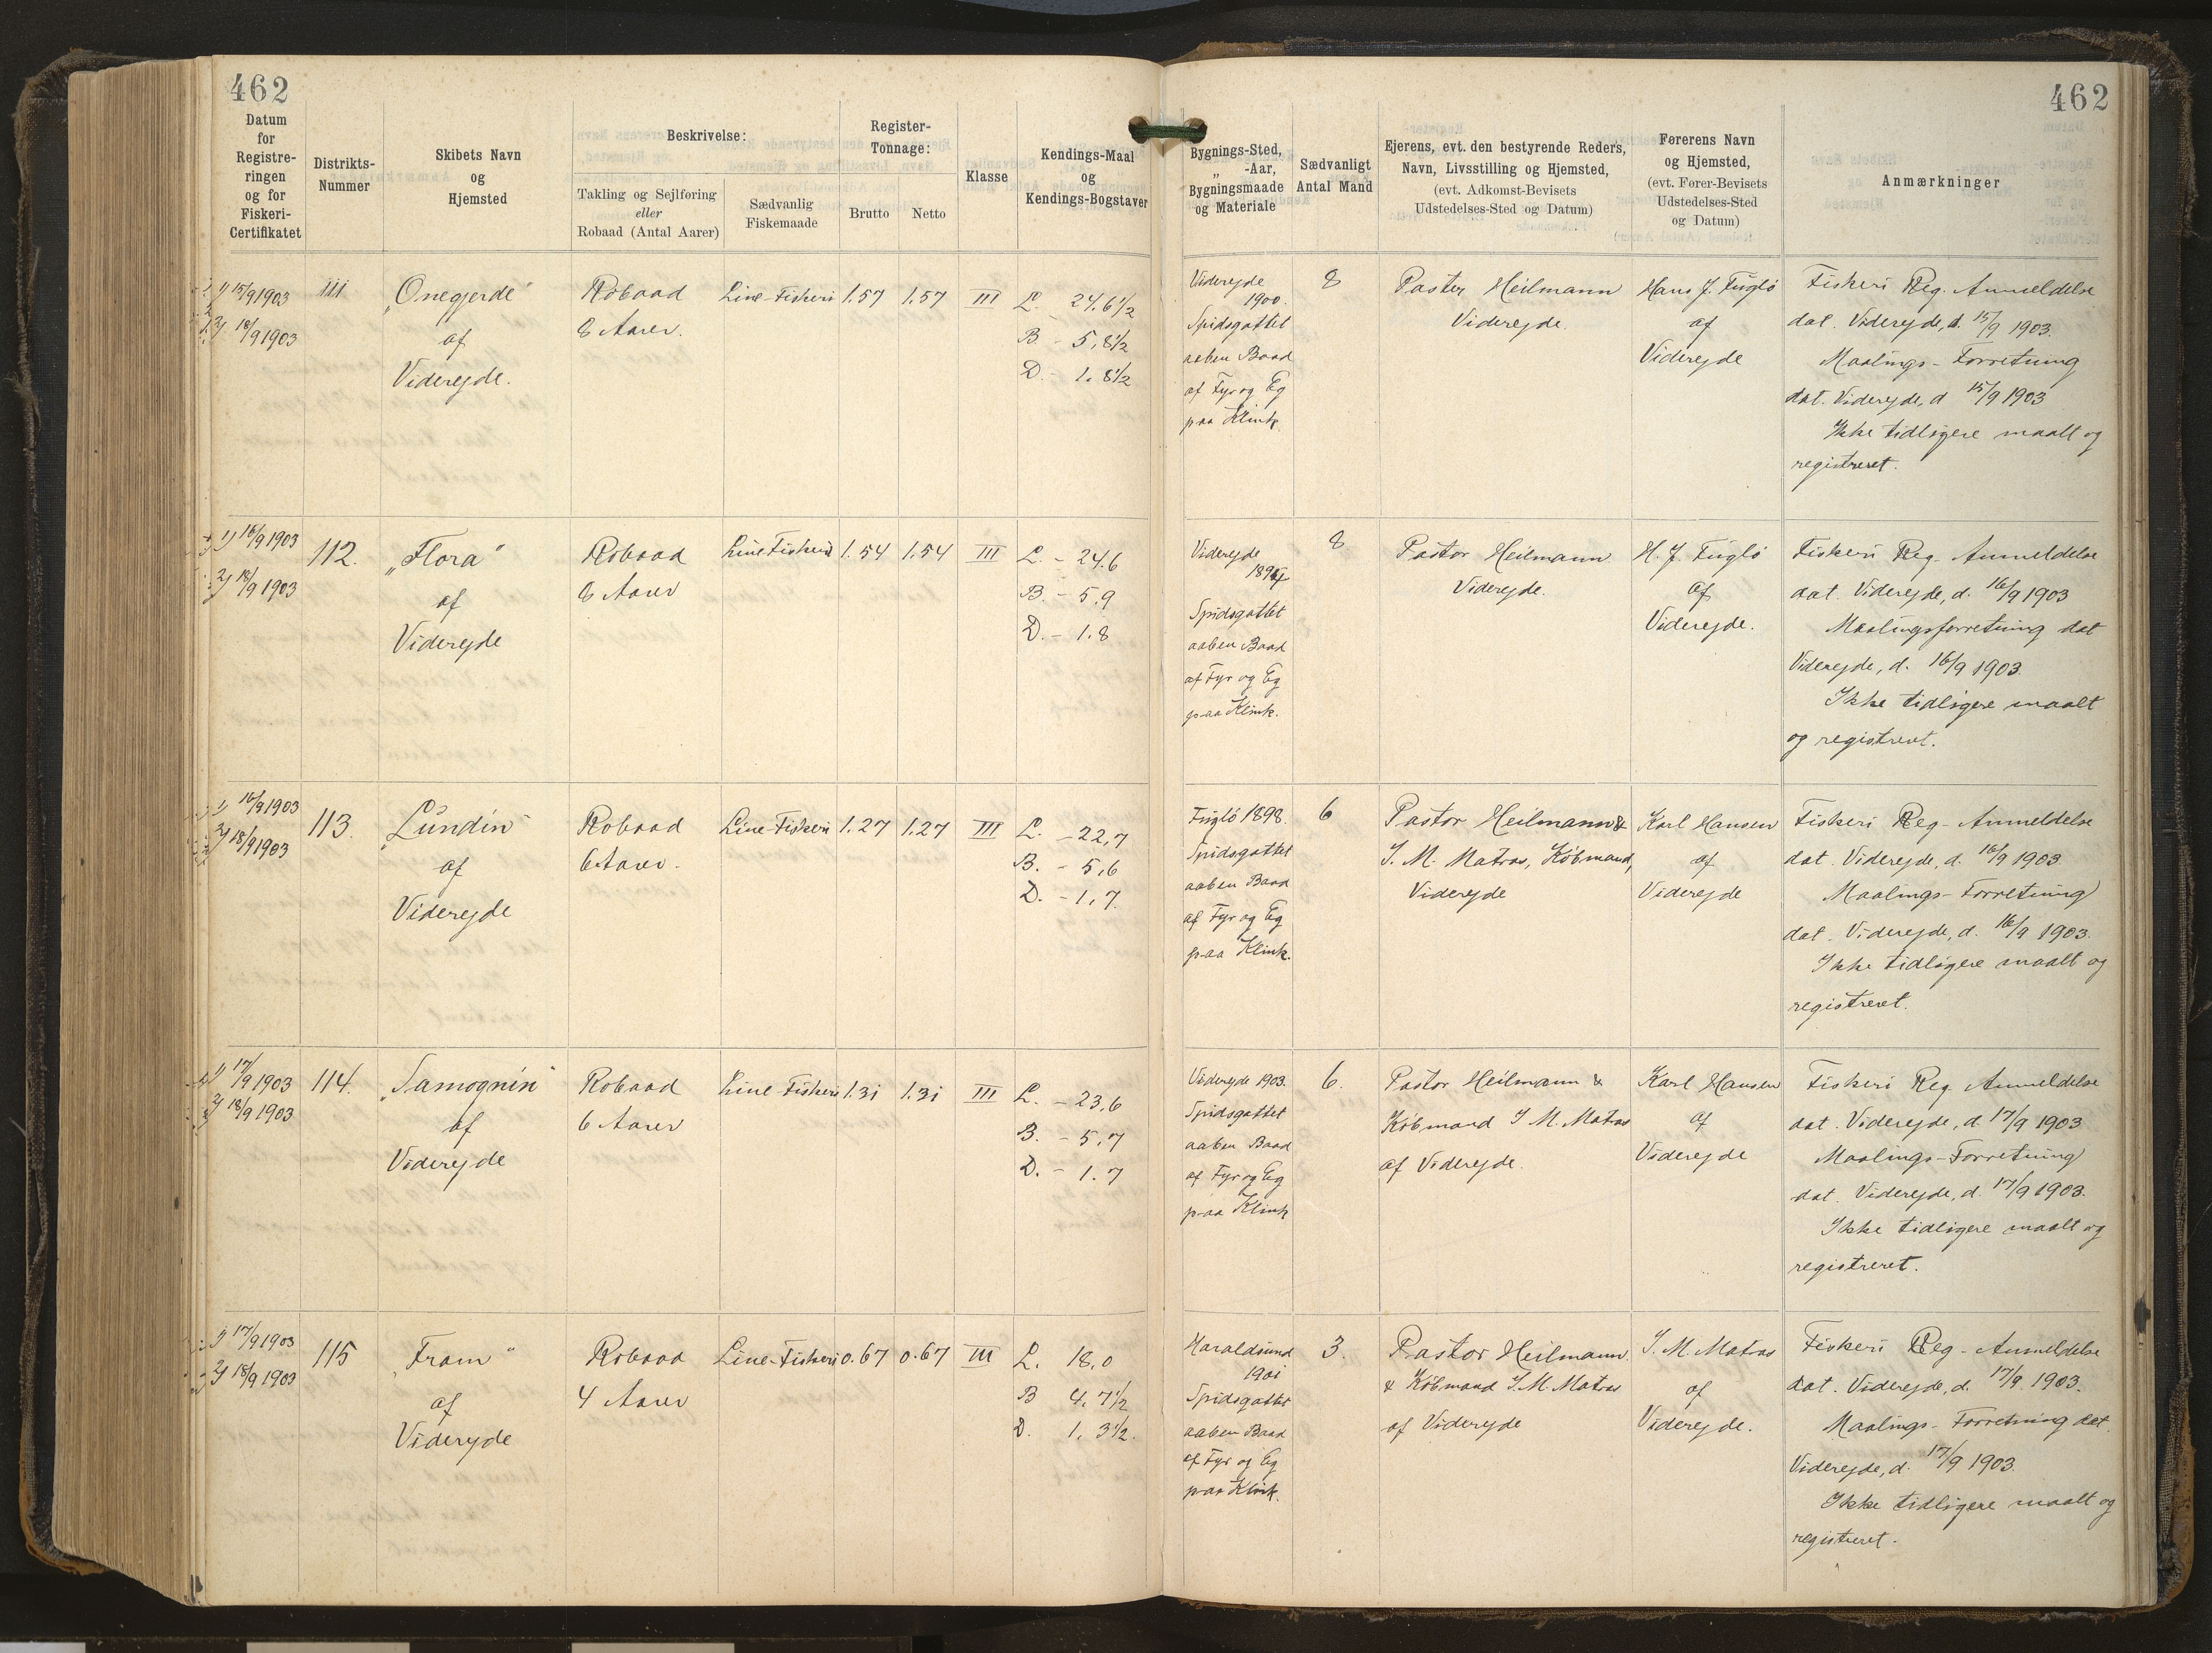 462
462
Datum
for
Registre-
ringen
og for
Fiskeri-
Certifikatet
Distrikts-
Nummer
Skibets Navn
og
Hjemsted
Beskrivelse:
Takling og Sejlføring
eller
Robaad (Antal Aarer)
Sædvanlig
Fiskemaade
Register-
Tonnage:
Brutto
Netto
Klasse
Kendings-Maal
og
Kendings-Bogstaver
Bygnings-Sted,
„ -Aar,
Bygningsmaade
og Materiale
Sædvanligt
Antal Mand
Ejerens, evt. den bestyrende Reders,
Navn, Livsstilling og Hjemsted,
(evt. Adkomst-Bevisets
Udstedelses-Sted og Datum)
Førerens Navn
og Hjemsted,
(evt. Fører-Bevisets
Udstedelses-Sted
og Datum)
Anmærkninger
1) 15/9 1903
2) 18/9 1903
111
„Onegjerde“
af
Viderejde.
Robaad
8 Aarer.
Line-Fiskeri
1.57
1.57
III
L. - 24.6 1/2
B - 5,8 1/2
D. - 1.8 1/2
Viderejde
1900.
Spidsgattet
aaben Baad
af Fyr og Eg
paa Klink
8
Pastor Heilmann
Viderejde.
Hans J. Fuglø
af
Viderejde
Fiskeri Reg. Anmeldelse
dat. Viderejde, d. 15/9 1903.
Maalings-Forretning
dat. Viderejde, d 15/9 1903
Ikke tidligere maalt og
registreret.
1) 16/9 1903
2) 18/9 1903
112.
„Flora“
af
Viderejde
Robaad
8 Aarer
Line Fiskeri
1.54
1.54
III
L. - 24.6
B. - 5.9
D. - 1.8
Viderejde
Spidsgattet
aaben Baad
af Fyr og Eg
paa Klink.
8
Pastor Heilmann
Viderejde.
H. J. Fuglø
af
Viderejde.
Fiskeri Reg. Anmeldelse
dat. Viderejde, d. 16/9 1903
Maalingsforretning dat
Viderejde, d. 16/9 1903.
Ikke tidligere maalt
og registreret.
1) 16/9 1903
2) 18/9 1903
113.
„Lundin“
af
Viderejde
Robaad
6 Aarer.
Line-Fiskeri
1.27
1.27
III
L. - 22,7
B. - 5,6
D. - 1,7
Fuglø 1898.
Spidsgattet
aaben Baad
af Fyr og Eg
paa Klink.
6
Pastor Heilmann &
J. M. Matras, Købmand,
Viderejde
Karl Hansen
af
Viderejde
Fiskeri Reg- Anmeldelse
dat. Viderejde, d. 16/9 1903
Maalings-Forretning
dat. Viderejde, d. 16/9 1903.
Ikke tidligere maalt og
registreret.
1) 17/9 1903
2) 18/9 1903
114.
„Samognin“
af
Viderejde
Robaad
6 Aarer
Line-Fiskeri
1.31
1.31
III
L. - 23,6
B. - 5,7
D. - 1.7
Viderejde 1903.
Spidsgattet
aaben Baad
af Fyr og Eg
paa Klink
6.
Pastor Heilmann &
Købmand J. M. Matras
af Viderejde.
Karl Hansen
af
Viderejde
Fiskeri Reg Anmeldelse
dat. Viderejde, d. 17/9 1903
Maalings-Forretning
dat. Viderejde, d. 17/9 1903.
Ikke tidligere maalt og
registreret.
1) 17/9 1903
2) 18/9 1903
115
„Fram“
af
Viderejde
Robaad
4 Aarer
Line-Fiskeri
0.67
0.67
III
L. 18,0
B 4,7 1/2
D. 1, 3 1/2.
Haraldsund
1901
Spidsgattet
aaben Baad
af Fyr og Eg
paa Klink.
3.
Pastor Heilmann
& Købmand J. M. Matras
af Viderejde
J. M. Matras
af
Viderejde.
Fiskeri Reg- Anmeldelse
dat. Viderejde, d. 17/9 1903.
Maalings- Forretning dat.
Viderejde, d. 17/9 1903.
Ikke tidligere maalt og
registreret.